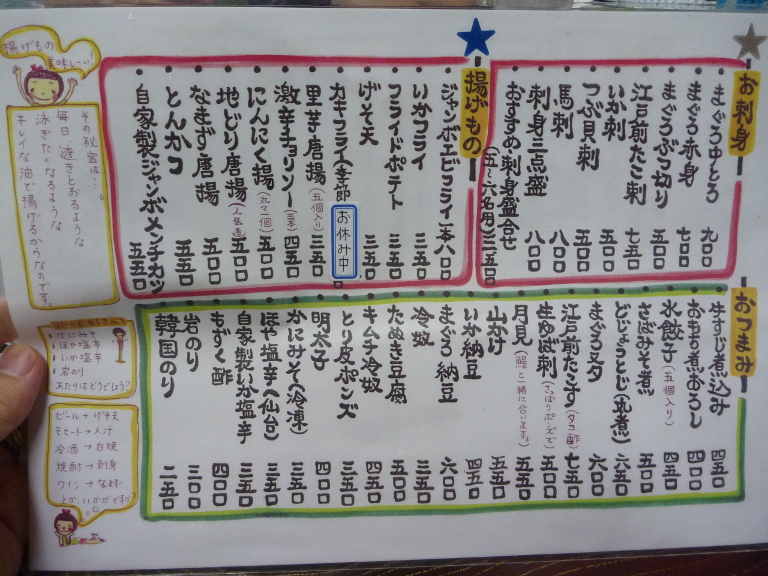 お刺身
まぐろ中とろ 九〇〇
まぐろ赤身 七〇〇
まぐろぶつ切り 五〇〇
江戸前たこ刺 七五〇
いか刺 五〇〇
つぶ貝刺 五〇〇
馬刺 八〇〇
刺身三点盛 八〇〇
おすすめ刺身盛合せ
(五〜六名用) 三五〇〇
揚げもの
ジャンボエビフライ一本 八〇〇
いかフライ 三五〇
フライドポテト 三五〇
げそ天 三五〇
カキフライ(季節 お休み中
里芋唐揚(五個入り) 三五〇
激辛チョリソー(三本) 四五〇
にんにく揚(丸々一個) 五〇〇
地どり唐揚(人気有) 五〇〇
なまず唐揚 五〇〇
とんかつ 五五〇
自家製ジャンボメンチカツ 五五〇
おつまみ
牛すじ煮込み 四五〇
おもち煮おろし 四〇〇
水餃子(五個入り) 四五〇
さばみそ煮 五〇〇
どじょうとじ(丸煮) 六五〇
まぐろヌタ 六〇〇
江戸前たこす(タコ酢) 七五〇
生ゆば刺(さっぱりポンズで) 五〇〇
月見(鰻と一緒に合います。) 五五〇
山かけ 五五〇
いか納豆 四五〇
まぐろ納豆 六〇〇
冷奴 三五〇
たぬき豆腐 五〇〇
キムチ冷奴 四五〇
とり皮ポンズ 三五〇
明太子 四〇〇
かにみそ(冷凍) 三五〇
ほや塩辛(仙台) 三五〇
自家製いか塩辛 三五〇
もずく酢 四〇〇
岩のり 三〇〇
韓国のり 二五〇
揚げもの
美味しーい!
その秘密は…。
毎日透きとおるような
泳ぎたくなるような
キレイな油で揚げるからなのです。
かにみそ
ほや塩辛
いか塩辛
岩のり
あたりはどうでしょう?
ビール→げそ天
冷酒→白焼
焼酎→刺身
ワイン→なまず
とか、いかがですか?